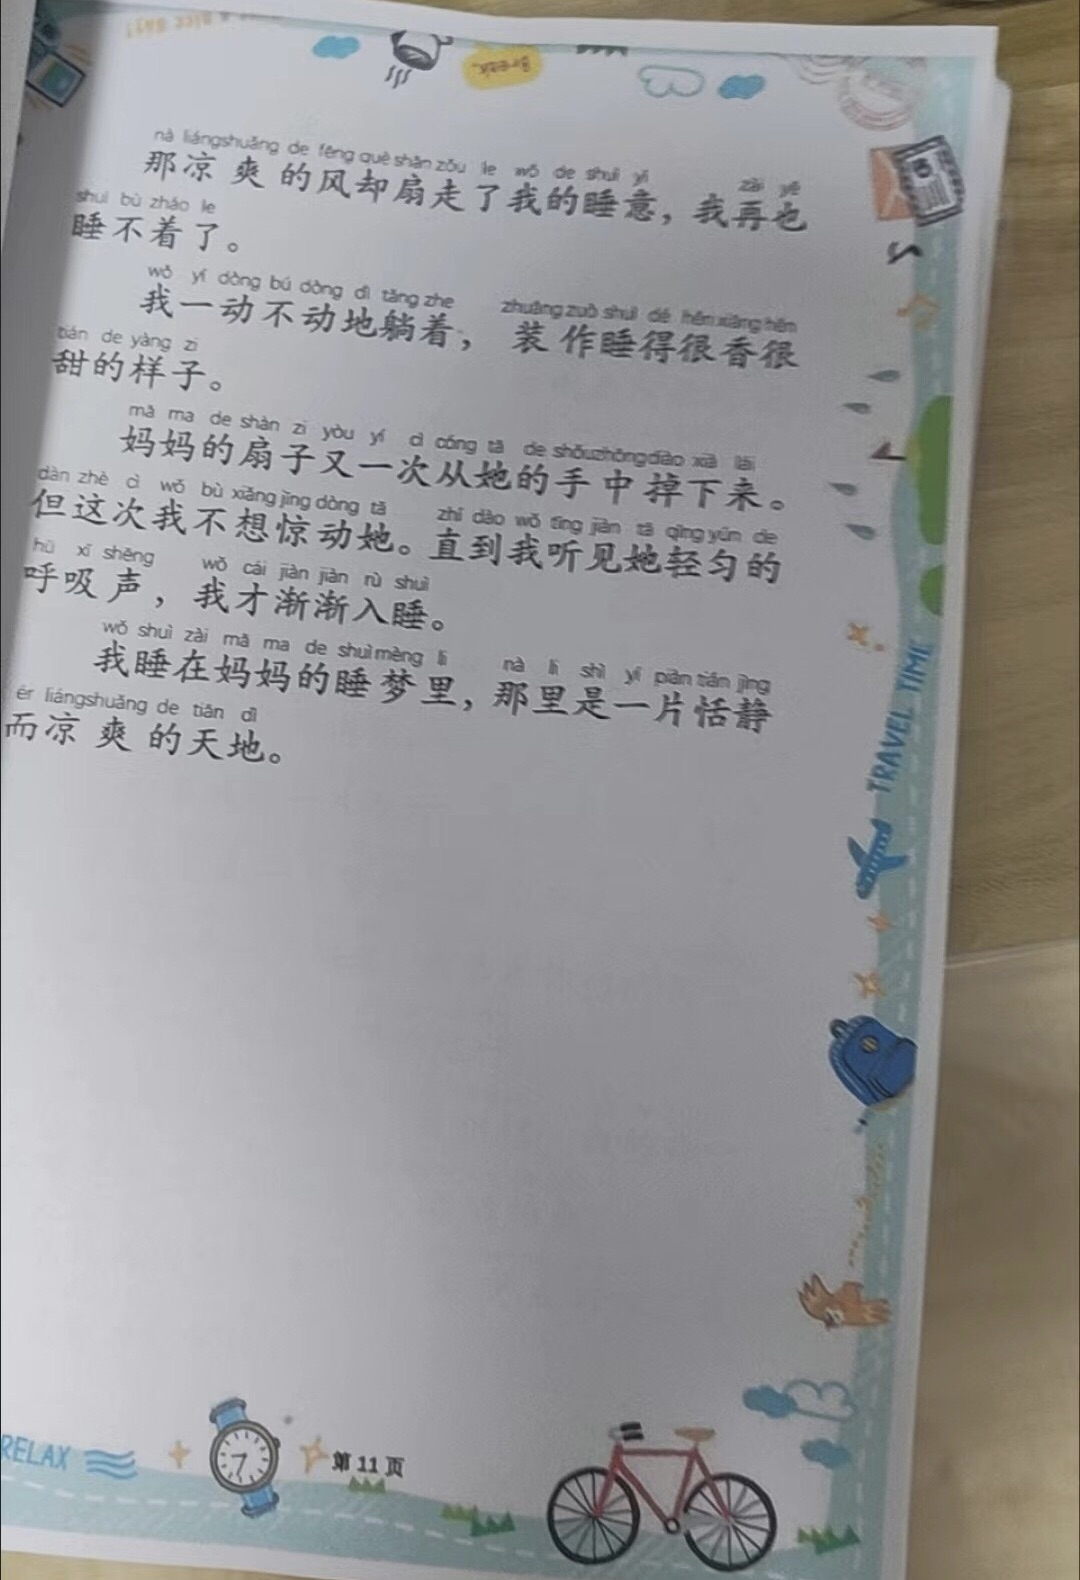 nà liángshuǎng de fēng què shān zǒu le wǒ de shuì yì zài yě
那凉爽的风却扇走了我的睡意，我再也
shuì bù zháo le
睡不着了。
wǒ yí dòng bú dòng dì tǎng zhe zhuāng zuò shuì dé hěn xiāng hěn
我一动不动地躺着，装作睡得很香很
tián de yàng zi
甜的样子。
mā ma de shàn zi yòu yí cì cóng tā de shǒuzhōngdiào xià lái
妈妈的扇子又一次从她的手中掉下来。
dàn zhè cì wǒ bù xiǎng jīng dòng tā zhí dào wǒ tīng jiàn tā qīng yún de
但这次我不想惊动她。直到我听见她轻匀的
hū xī shēng wǒ cái jiàn jiàn rù shuì
呼吸声，我才渐渐入睡。
wǒ shuì zài mā ma de shuì mèng lǐ nà lǐ shì yí piàn tián jìng
我睡在妈妈的睡梦里，那里是一片恬静
ér liángshuǎng de tiān dì
而凉爽的天地。
TRAVEL TIME
RELAX
第11页